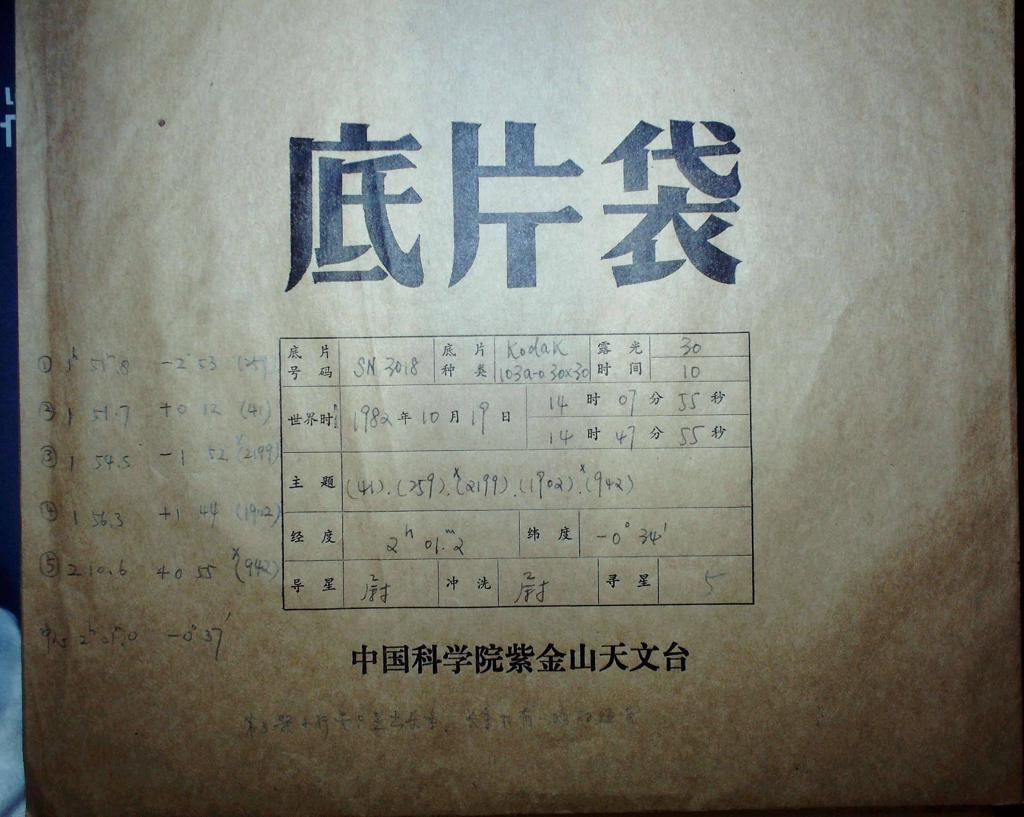 底片袋
底片号码 SN 3018 底片种类 Kodak 103a-o 30x30 露光时间 30 10
世界时 1982年10月19日 14时07分55秒
14时47分55秒
主题 (41).(259).ˣ(2199).(1902).ˣ(942)
经度 2ʰ 01.ᵐ2 纬度 -0° 34′
导星 冲洗 寻星 5
① 1ʰ 51.ᵐ8 -2° 53 (259)
② 1 51.7 +0 12 (41)
③ 1 54.5 -1 52 ˣ(2199)
④ 1 56.3 +1 44 (1902)
⑤ 2 10.6 +0 55 ˣ(942)
中心 2ʰ 01.ᵐ0 -0° 37′
中国科学院紫金山天文台